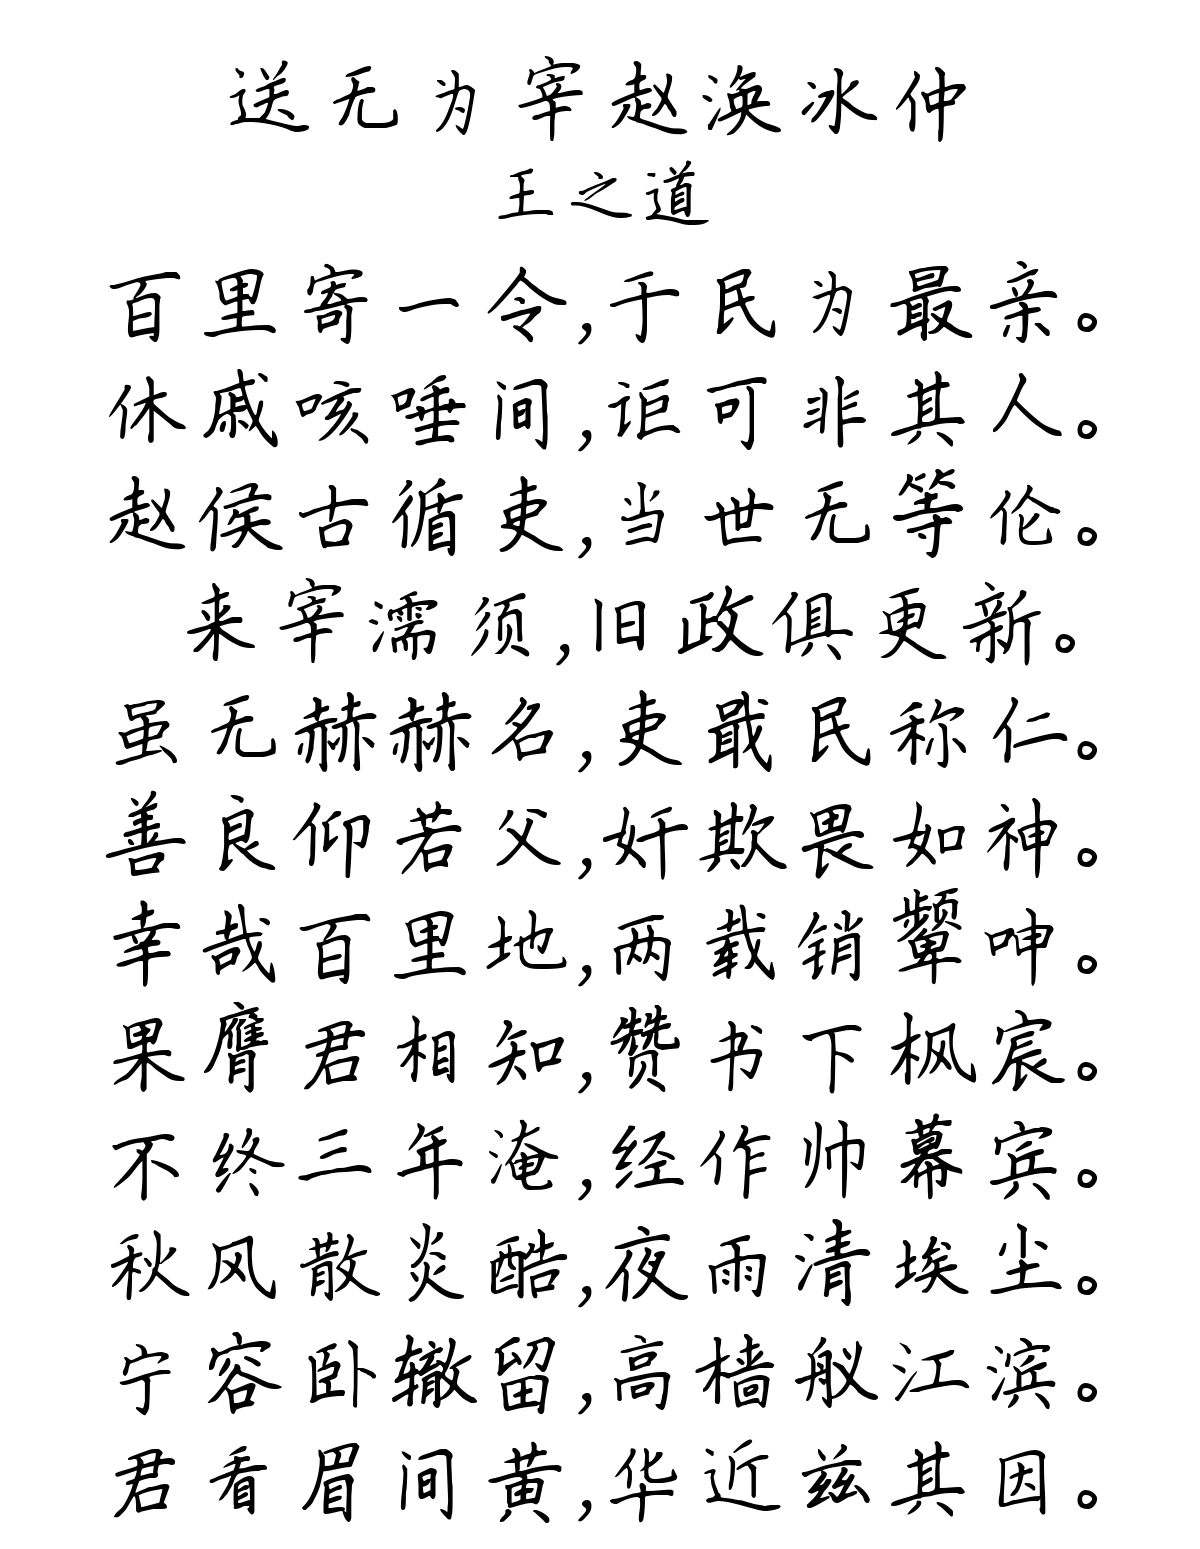 送无为宰赵涣冰仲
王之道
百里寄一令,于民为最亲。
休戚咳唾间,讵可非其人。
赵侯古循吏,当世无等伦。
来宰濡须,旧政俱更新。
虽无赫赫名,吏戢民称仁。
善良仰若父,奸欺畏如神。
幸哉百里地,两载销颦呻。
果膺君相知,赞书下枫宸。
不终三年淹,经作帅幕宾。
秋风散炎酷,夜雨清埃尘。
宁容卧辙留,高樯舣江滨。
君看眉间黄,华近兹其因。